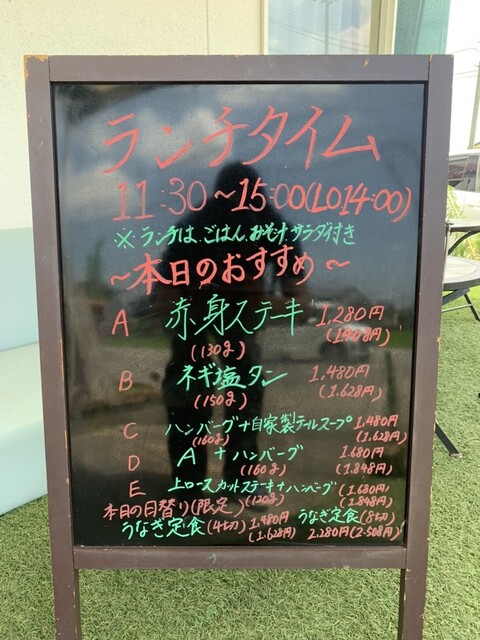 ランチタイム
11:30~15:00(LO14:00)
※ランチは、ごはん、みそ汁、サラダ付き
~本日のおすすめ~
A 赤身ステーキ 1,280円
(130g) (1408円)
B ネギ塩タン 1,480円
(150g) (1.628円)
C ハンバーグ+自家製テールスープ 1,480円
(160g) (1.628円)
D A+ハンバーグ 1.680円
(160g) (1.848円)
E 上ロースカットステーキ+ハンバーグ (1.680円)
本日の日替り(限定) (120g) (1.848円)
うなぎ定食(4切) 1.480円 うなぎ定食(8切)
(1.628円) 2.280円(2.508円)